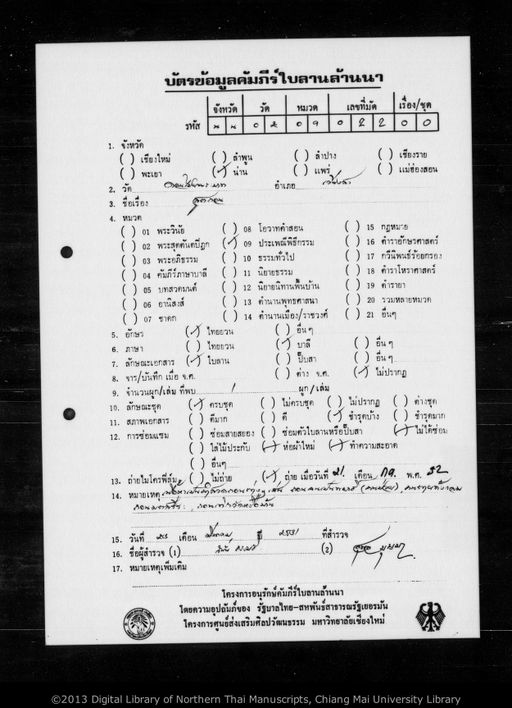 บัตรข้อมูลคัมภีร์ใบลานล้านนา
จังหวัด วัด หมวด เลขที่มัด เรื่อง/ชุด
รหัส น น ๐ ๕ ๐ ๙ ๐ ๒ ๒ ๐ ๐
1. จังหวัด
( ) เชียงใหม่ ( ) ลำพูน ( ) ลำปาง ( ) เชียงราย
( ) พะเยา (✓) น่าน ( ) แพร่ ( ) แม่ฮ่องสอน
2. วัด อำเภอ
3. ชื่อเรื่อง
4. หมวด
( ) 01 พระวินัย ( ) 08 โอวาทคำสอน ( ) 15 กฎหมาย
( ) 02 พระสุตตันตปิฎก (✓) 09 ประเพณีพิธีกรรม ( ) 16 ตำราอักษรศาสตร์
( ) 03 พระอภิธรรม ( ) 10 ธรรมทั่วไป ( ) 17 กวีนิพนธ์ร้อยกรอง
( ) 04 คัมภีร์ภาษาบาลี ( ) 11 นิยายธรรม ( ) 18 ตำราโหราศาสตร์
( ) 05 บทสวดมนต์ ( ) 12 นิยายนิทานพื้นบ้าน ( ) 19 ตำรายา
( ) 06 อานิสงส์ ( ) 13 ตำนานพุทธศาสนา ( ) 20 รวมหลายหมวด
( ) 07 ชาดก ( ) 14 ตำนานเมือง/ราชวงศ์ ( ) 21 อื่นๆ
5. อักษร (✓) ไทยยวน ( ) อื่นๆ
6. ภาษา ( ) ไทยยวน (✓) บาลี ( ) อื่นๆ
7. ลักษณะเอกสาร (✓) ใบลาน ( ) ปั๊บสา ( ) อื่นๆ
8. จาร/บันทึก เมื่อ จ.ศ. ( ) ต่าง จ.ศ. (✓) ไม่ปรากฏ
9. จำนวนผูก/เล่ม ที่พบ 1 ผูก/เล่ม
10. ลักษณะชุด (✓) ครบชุด ( ) ไม่ครบชุด ( ) ไม่ปรากฏ ( ) ต่างชุด
11. สภาพเอกสาร ( ) ดีมาก ( ) ดี (✓) ชำรุดบ้าง ( ) ชำรุดมาก
12. การซ่อมแซม ( ) ซ่อมสายสยอง ( ) ซ่อมตัวใบลานหรือปั๊บสา (✓) ไม่ได้ซ่อม
( ) ใส่ไม้ประกับ (✓) ห่อผ้าใหม่ (✓) ทำความสะอาด
( ) อื่นๆ
13. ถ่ายไมโครฟิล์ม ( ) ไม่ถ่าย (✓) ถ่าย เมื่อวันที่ 21 เดือน กค. พ.ศ. 32
14. หมายเหตุ
15. วันที่ เดือน ปี ๒๕๓๑ ที่สำรวจ
16. ชื่อผู้สำรวจ (1) (2)
17. หมายเหตุเพิ่มเติม
โครงการอนุรักษ์คัมภีร์ใบลานล้านนา
โดยความอุปถัมภ์ของ รัฐบาลไทย-สหพันธ์สาธารณรัฐเยอรมัน
โครงการศูนย์ส่งเสริมศิลปวัฒนธรรม มหาวิทยาลัยเชียงใหม่
©2013 Digital Library of Northern Thai Manuscripts, Chiang Mai University Library